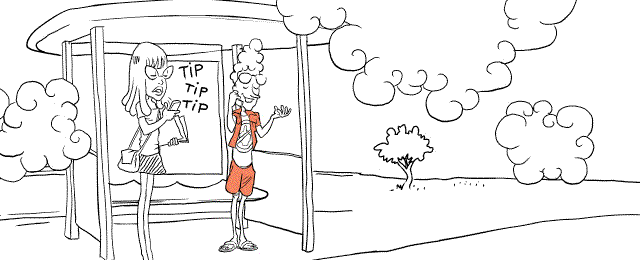 TiP
TiP
TiP